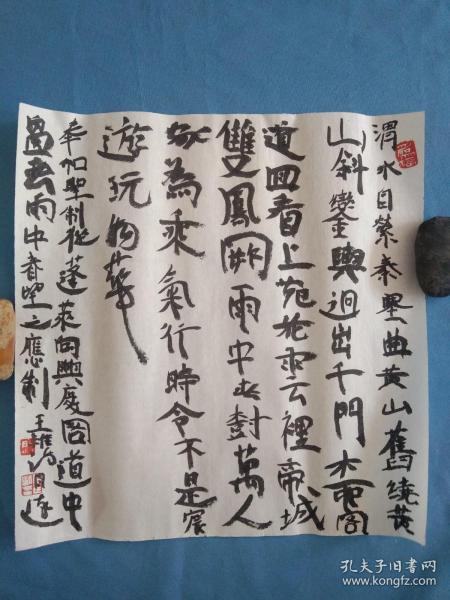 渭水自縈秦塞曲黄山舊繞黄
山斜鑾輿迥出千門柳閣
道回看上苑花雲裡帝城
雙鳳闕雨中春樹萬人
家為乘氣行時令不是宸
遊玩物華
奉和聖制從蓬萊向興慶閣道中
留春雨中春望之應制 王維诗
孔夫子旧书网
www.kongfz.com